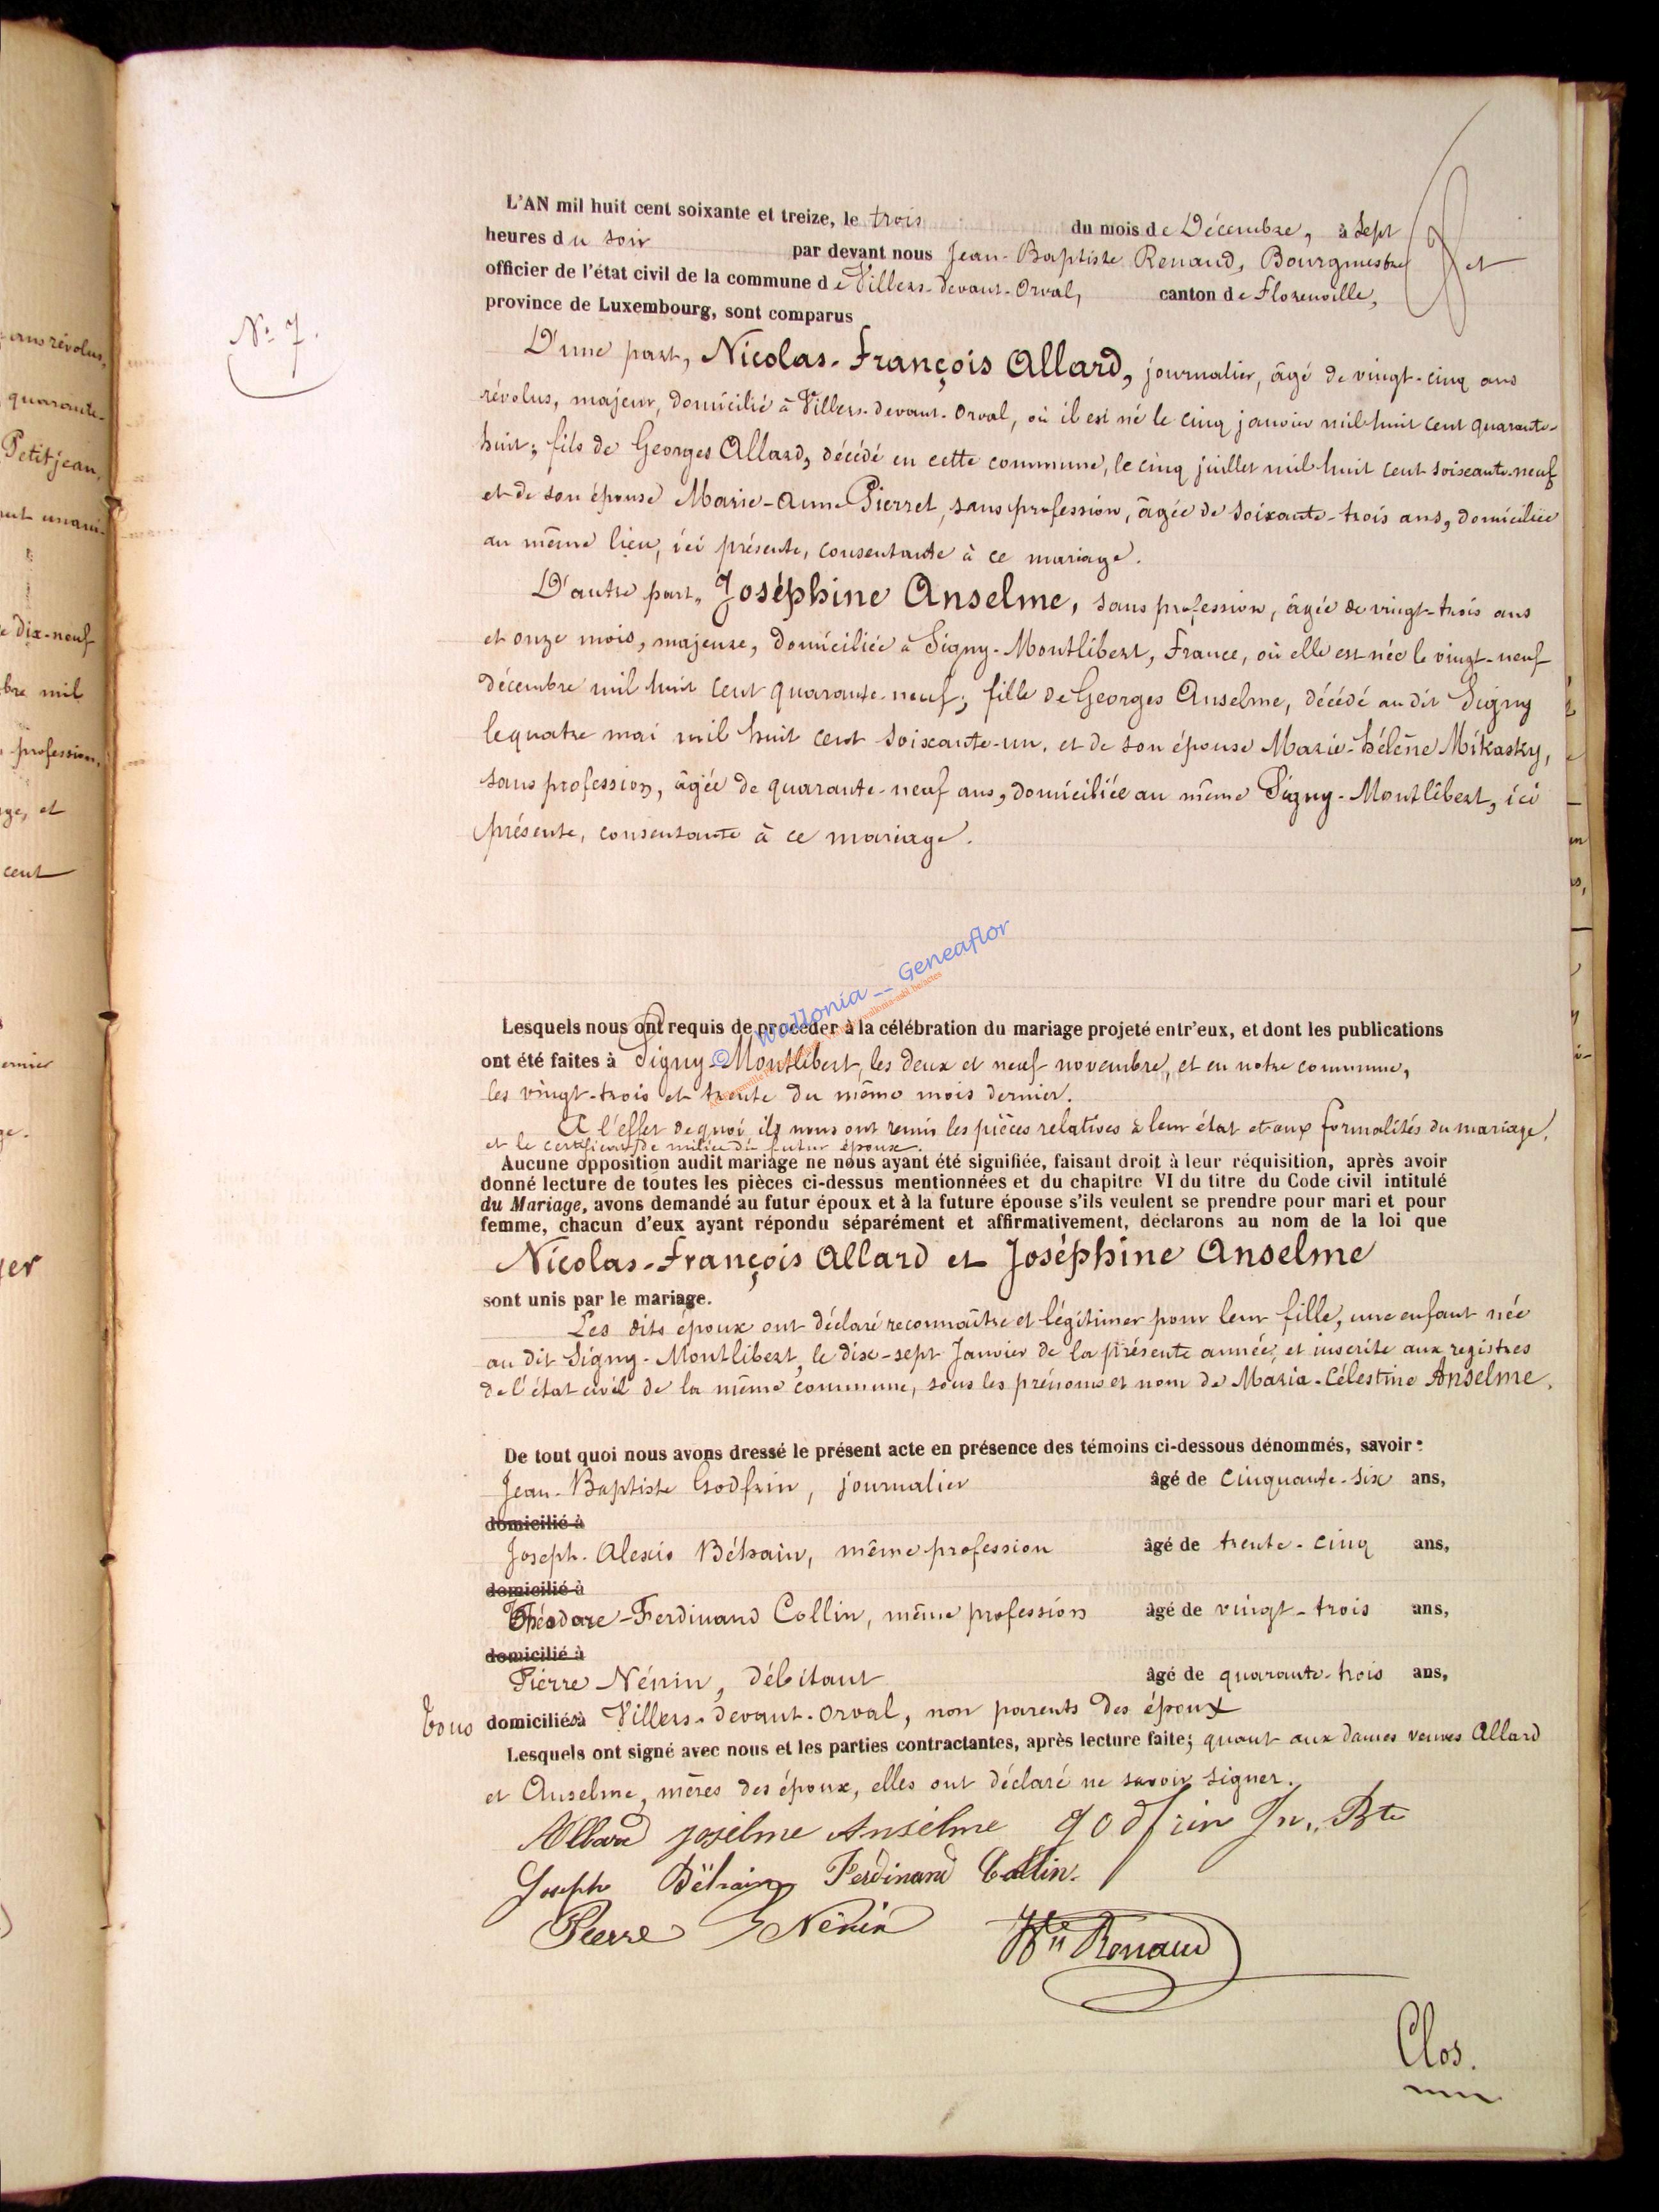 N.° 7.
L'AN mil huit cent soixante et treize, le trois du mois de Décembre, à Sept
heures du soir par devant nous Jean-Baptiste Renaud, Bourgmestre et
officier de l'état civil de la commune de Villers-devant-Orval, canton de Florenville,
province de Luxembourg, sont comparus
D'une part, Nicolas-François Allard, journalier, âgé de vingt-cinq ans
révolus, majeur, domicilié à Villers-devant-Orval, où il est né le cinq janvier mil huit cent quarante-
huit; fils de Georges Allard, décédé en cette commune, le cinq juillet mil huit cent soixante-neuf
et de son épouse Marie-Anne Pierret, sans profession, âgée de soixante-trois ans, domiciliée
au même lieu, ici présente, consentante à ce mariage.
D'autre part, Joséphine Anselme, sans profession, âgée de vingt-trois ans
et onze mois, majeure, domiciliée à Signy-Montlibert, France, où elle est née le vingt-neuf
décembre mil huit cent quarante-neuf; fille de Georges Anselme, décédé au dit Signy
le quatre mai mil huit cent soixante-un, et de son épouse Marie-Hélène Mikasky,
sans profession, âgée de quarante-neuf ans, domiciliée au même Signy-Montlibert, ici
présente, consentante à ce mariage.
© Wallonia -- Geneaflor
Lesquels nous ont requis de procéder à la célébration du mariage projeté entr'eux, et dont les publications
ont été faites à Signy-Montlibert, les deux et neuf novembre, et en notre commune,
les vingt-trois et trente du même mois dernier.
A l'effet de quoi ils nous ont remis les pièces relatives à leur état et aux formalités du mariage,
et le certificat de milice du futur époux.
Aucune opposition audit mariage ne nous ayant été signifiée, faisant droit à leur réquisition, après avoir
donné lecture de toutes les pièces ci-dessus mentionnées et du chapitre VI du titre du Code civil intitulé
du Mariage, avons demandé au futur époux et à la future épouse s'ils veulent se prendre pour mari et pour
femme, chacun d'eux ayant répondu séparément et affirmativement, déclarons au nom de la loi que
Nicolas-François Allard et Joséphine Anselme
sont unis par le mariage.
Les dits époux ont déclaré reconnaître et légitimer pour leur fille, une enfant née
au dit Signy-Montlibert, le dix-sept Janvier de la présente année, et inscrite aux registres
de l'état civil de la même commune, sous les prénoms et nom de Maria-Célestine Anselme.
De tout quoi nous avons dressé le présent acte en présence des témoins ci-dessous dénommés, savoir:
Jean-Baptiste Godfrin, journalier âgé de cinquante-six ans,
domicilié à
Joseph-Alexis Bétrain, même profession âgé de trente-cinq ans,
domicilié à
Théodore-Ferdinand Collin, même profession âgé de vingt-trois ans,
domicilié à
Pierre Nénin, débitant âgé de quarante-trois ans,
Tous domiciliés à Villers-devant-Orval, non parents des époux
Lesquels ont signé avec nous et les parties contractantes, après lecture faite; quant aux dames veuves Allard
et Anselme, mères des époux, elles ont déclaré ne savoir signer.
Allard joselme Anselme godfrin Jn. Bte
Joseph Bétrain Ferdinand Collin.
Pierre Nénin Renaud
Clos.